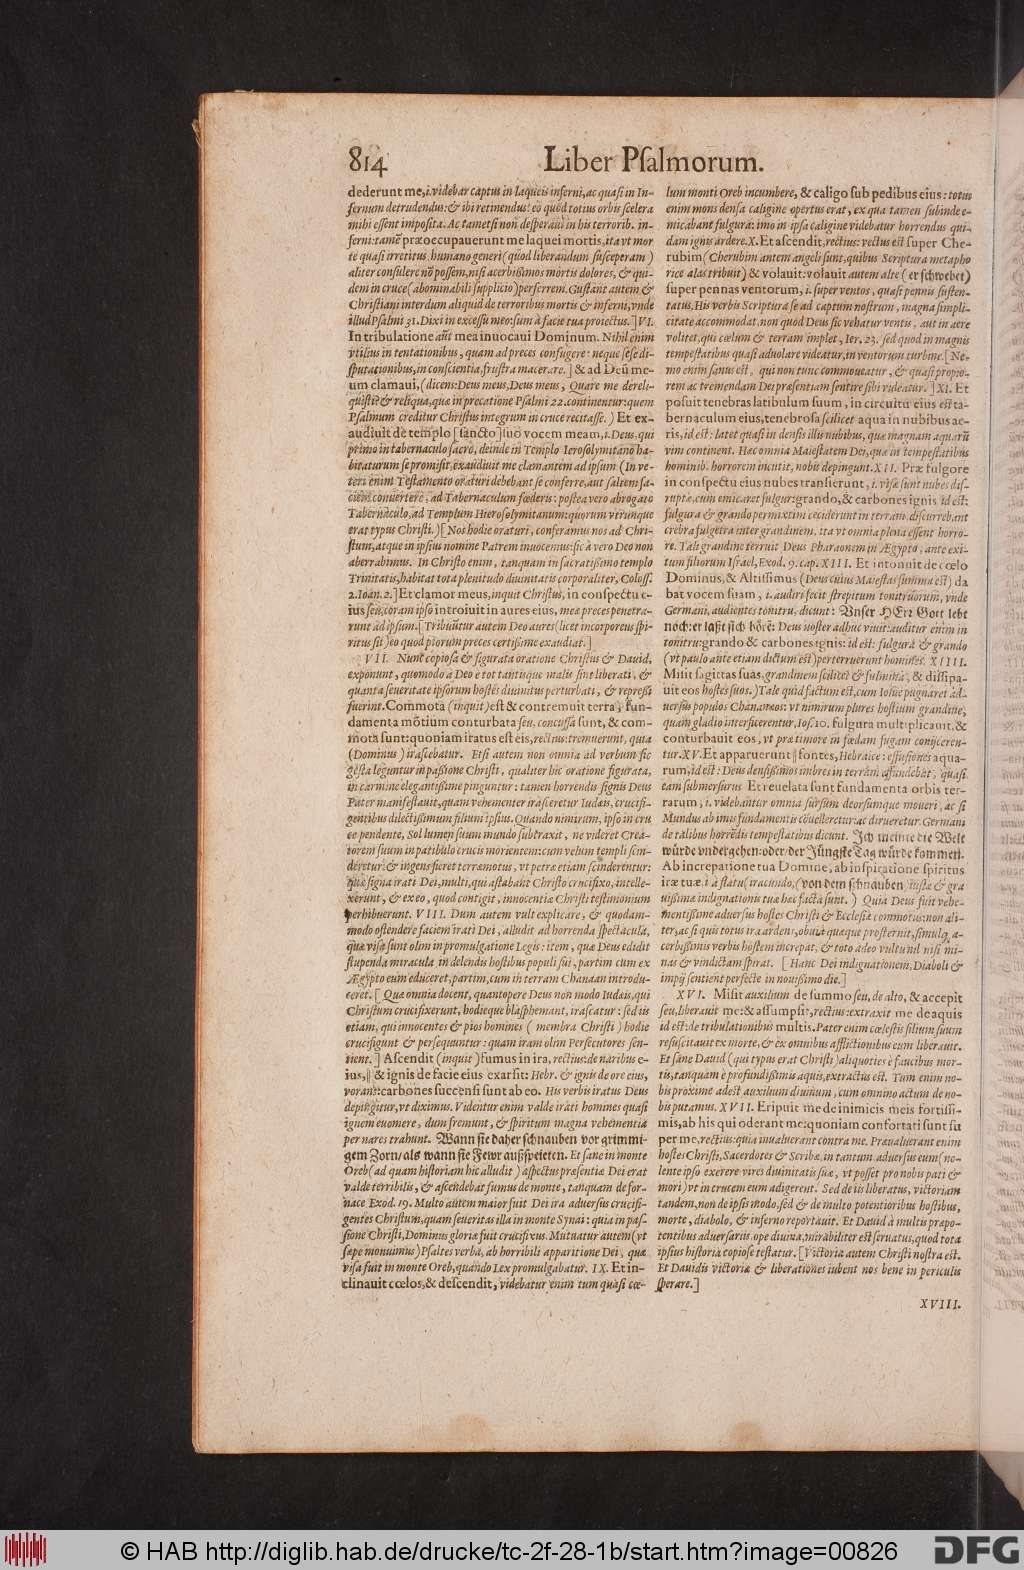 814 Liber Pſalmorum.
dederunt me, i. videbar captus in laqueis inferni, ac quaſi in In-
fernum detrudendus: & ibi retinendus: eò quòd totius orbis ſcelera
mihi eſſent impoſita: Ac tametſi non deſperaui in his terrorib. in-
ferni: tamē præoccupauerunt me laquei mortis, ita vt mor
te quaſi irretitus, humano generi (quod liberandum ſuſceperam)
aliter conſulere nō poſſem, niſi acerbiſsimos mortis dolores, & qui-
dem in cruce (abominabili ſupplicio) perferrem. Guſtant autem &
Chriſtiani interdum aliquid de terroribus mortis & inferni, vnde
illud Pſalmi 31. Dixi in exceſſu meo: ſum à facie tua proiectus.] VI.
In tribulatione aūt mea inuocaui Dominum. Nihil enim
vtilius in tentationibus, quam ad preces confugere: neque ſeſe di-
ſputationibus, in conſcientia, fruſtra macerare.] & ad Deū me-
um clamaui, (dicens: Deus meus, Deus meus, Quare me dereli-
quiſti? & reliqua, quæ in precatione Pſalmi 22. continentur: quem
Pſalmum creditur Chriſtus integrum in cruce recitaſſe.) Et ex-
audiuit de templo [ſancto] ſuo vocem meam, i. Deus, qui
primo in tabernaculo ſacro, deinde in Templo Ieroſolymitano ha-
bitaturum ſe promiſit, exaudiuit me clamantem ad ipſum (In ve-
teri enim Teſtamento oraturi debebant ſe conferre, aut ſaltem fa-
ciem conuertere, ad Tabernaculum fœderis: poſtea vero abrogato
Tabernaculo, ad Templum Hieroſolymitanum: quorum vtrunque
erat typus Chriſti.) [Nos hodie oraturi, conferamus nos ad Chri-
ſtum, atque in ipſius nomine Patrem inuocemus: ſic à vero Deo non
aberrabimus. In Chriſto enim, tanquam in ſacratiſsimo templo
Trinitatis, habitat tota plenitudo diuinitatis corporaliter, Coloſſ.
2. Ioan. 2.] Et clamor meus, inquit Chriſtus, in conſpectu e-
ius ſeu, coram ipſo introiuit in aures eius, meæ preces penetra-
runt ad ipſum. [Tribuūtur autem Deo aures (licet incorporeus ſpi-
ritus ſit) eo quod piorum preces certiſsime exaudiat.]
VII. Nunc copioſa & figurata oratione Chriſtus & Dauid,
exponunt, quomodo à Deo è tot tantisque malis ſint liberati, &
quanta ſeueritate ipſorum hoſtes diuinitus perturbati, & repreſſi
fuerint. Commota (inquit) eſt & contremuit terra, fun-
damenta mōtium conturbata ſeu, concuſſa ſunt, & com-
mota ſunt: quoniam iratus eſt eis, rectius: tremuerunt, quia
(Dominus) iraſcebatur. Etſi autem non omnia ad verbum ſic
geſta leguntur in paſsione Chriſti, qualiter hic oratione figurata,
in carmine elegantiſsime pinguntur: tamen horrendis ſignis Deus
Pater manifeſtauit, quam vehementer iraſceretur Iudæis, crucifi-
gentibus dilectiſsimum filium ipſius. Quando nimirum, ipſo in cru
ce pendente, Sol lumen ſuum mundo ſubtraxit, ne videret Crea-
torem ſuum in patibulo crucis morientem: cum velum templi ſcin-
deretur: & ingens fieret terræmotus, vt petræ etiam ſcinderentur:
quæ ſigna irati Dei, multi, qui aſtabant Chriſto crucifixo, intelle-
xerunt, & ex eo, quod contigit, innocentiæ Chriſti teſtimonium
perhibuerunt. VIII. Dum autem vult explicare, & quodam-
modo oſtendere faciem irati Dei, alludit ad horrenda ſpectacula,
quæ viſa ſunt olim in promulgatione Legis: item, quæ Deus edidit
ſtupenda miracula in delendis hoſtibus populi ſui, partim cum ex
Ægypto eum educeret, partim, cum in terram Chanaan introdu-
ceret. [Quæ omnia docent, quantopere Deus non modo Iudæis, qui
Chriſtum crucifixerunt, hodieque blaſphemant, iraſcatur: ſed iis
etiam, qui innocentes & pios homines (membra Chriſti) hodie
crucifigunt & perſequuntur: quam iram olim Perſecutores ſen-
tient.] Aſcendit (inquit) fumus in ira, rectius: de naribus e-
ius, & ignis de facie eius exarſit: Hebr. & ignis de ore eius,
vorans: carbones ſuccenſi ſunt ab eo. His verbis iratus Deus
depingitur, vt diximus. Videntur enim valde irati homines quaſi
ignem euomere, dum fremunt, & ſpiritum magna vehementia
per nares trahunt. Wann ſie daher ſchnauben vor grimmi-
gem Zorn/ als wann ſie Fewr außſpeieten. Et ſane in monte
Oreb (ad quam hiſtoriam hic alludit) aſpectus præſentiæ Dei erat
valde terribilis, & aſcendebat fumus de monte, tanquam de for-
nace Exod. 19. Multo autem maior fuit Dei ira aduerſus crucifi-
gentes Chriſtum, quam ſeueritas illa in monte Synai: quia in paſ-
ſione Chriſti, Dominus gloriæ fuit crucifixus. Mutuatur autem (vt
ſæpe monuimus) Pſaltes verba, ab horribili apparitione Dei, quæ
viſa fuit in monte Oreb, quando Lex promulgabatur. IX. Et in-
clinauit cœlos, & deſcendit, videbatur enim tum quaſi cœ-
lum monti Oreb incumbere, & caligo ſub pedibus eius: totus
enim mons denſa caligine opertus erat, ex qua tamen ſubinde e-
micabant fulgura: imo in ipſa caligine videbatur horrendus qui-
dam ignis ardere. X. Et aſcendit, rectius: vectus eſt ſuper Che-
rubim (Cherubim autem angeli ſunt, quibus Scriptura metapho
ricè alas tribuit) & volauit: volauit autem alte (er ſchwebet)
ſuper pennas ventorum, i. ſuper ventos, quaſi pennis ſuſten-
tatus. His verbis Scriptura ſe ad captum noſtrum, magna ſimpli-
citate accommodat. non quod Deus ſic vehatur ventis, aut in aere
volitet, qui cœlum & terram implet, Ier. 23. ſed quod in magnis
tempeſtatibus quaſi aduolare videatur, in ventorum turbine. [Ne-
mo enim ſanus eſt, qui non tunc commoueatur, & quaſi propio-
rem ac tremendam Dei præſentiam ſentire ſibi videatur.] XI. Et
poſuit tenebras latibulum ſuum, in circuitu eius eſt ta-
bernaculum eius, tenebroſa ſcilicet aqua in nubibus ae-
ris, id eſt: latet quaſi in denſis illis nubibus, quæ magnam aquarū
vim continent. Hæc omnia Maieſtatem Dei, quæ in tempeſtatibus
hominib. horrorem incutit, nobis depingunt. XII. Præ fulgore
in conſpectu eius nubes tranſierunt, i. viſæ ſunt nubes diſ-
ruptæ, cum emicaret fulgur: grando, & carbones ignis id eſt:
fulgura & grando permixtim ceciderunt in terram. diſcurrebant
crebra fulgetra inter grandinem, ita vt omnia plena eſſent horro-
re. Tali grandine terruit Deus Pharaonem in Ægypto, ante exi-
tum filiorum Iſrael, Exod. 9. cap. XIII. Et intonuit de cœlo
Dominus, & Altiſſimus (Deus cuius Maieſtas ſumma eſt) da
bat vocem ſuam, i. audiri fecit ſtrepitum tonitruorum, vnde
Germani, audientes tonitru, dicunt: Vnſer HErr Gott lebt
noch: er laßt ſich hörē: Deus noſter adhuc viuit: auditur enim in
tonitru: grando & carbones ignis: id eſt: fulgura & grando
(vt paulo ante etiam dictum eſt) perterruerunt homines. XIIII.
Miſit ſagittas ſuas, grandinem ſcilicet & fulmina, & diſſipa-
uit eos hoſtes ſuos.) Tale quid factum eſt, cum Ioſue pugnaret ad-
uerſus populos Chananæos: vt nimirum plures hoſtium grandine,
quam gladio interficerentur, Ioſ. 10. fulgura multiplicauit, &
conturbauit eos, vt præ timore in fœdam fugam conijceren-
tur. XV. Et apparuerunt fontes, Hebraice: effuſiones aqua-
rum, id eſt: Deus denſiſsimos imbres in terram effundebat, quaſi
eam ſubmerſurus Et reuelata ſunt fundamenta orbis ter-
rarum, i. videbantur omnia ſurſum deorſumque moueri, ac ſi
Mundus ab imis fundamentis cōuelleretur: ac dirueretur. Germani
de talibus horrēdis tempeſtatibus dicunt. Ich meinte die Welt
würde vndergehen: oder der Jüngſte Tag würde kommen.
Ab increpatione tua Domine, ab inſpiratione ſpiritus
iræ tuæ. i. à flatu (iracundo, (von dem ſchnauben) iuſtæ & gra
uiſsimæ indignationis tuæ hæc facta ſunt.) Quia Deus fuit vehe-
mentiſsime aduerſus hoſtes Chriſti & Eccleſiæ commotus: non ali-
ter, ac ſi quis totus ira ardens, obuia quæque proſternit, ſimulq; a-
cerbiſsimis verbis hoſtem increpat, & toto adeo vultu nil niſi mi-
nas & vindictam ſpirat. [Hanc Dei indignationem, Diaboli &
impij ſentient perfecte in nouiſsimo die.]
XVI. Miſit auxilium de ſummo ſeu, de alto, & accepit
ſeu, liberauit me: & aſſumpſit, rectius: extraxit me de aquis
id eſt: de tribulationibus multis. Pater enim cœleſtis filium ſuum
reſuſcitauit ex morte, & ex omnibus afflictionibus eum liberauit.
Et ſane Dauid (qui typus erat Chriſti) aliquoties è faucibus mor-
tis, tanquam è profundiſsimis aquis, extractus eſt. Tum enim no-
bis proxime adeſt auxilium diuinum, cum omnino actum de no-
bis putamus. XVII. Eripuit me de inimicis meis fortiſſi-
mis, ab his qui oderant me: quoniam confortati ſunt ſu
per me, rectius: quia inualuerant contra me. Præualuerant enim
hoſtes Chriſti, Sacerdotes & Scribæ, in tantum aduerſus eum (no-
lente ipſo exerere vires diuinitatis ſuæ, vt poſſet pro nobis pati &
mori) vt in crucem eum adigerent. Sed de iis liberatus, victoriam
tandem, non de ipſis modo, ſed & de multo potentioribus hoſtibus,
morte, diabolo, & inferno reportauit. Et Dauid à multis præpo-
tentibus aduerſariis ope diuina, mirabiliter eſt ſeruatus, quod tota
ipſius hiſtoria copioſe teſtatur. [Victoria autem Chriſti noſtra eſt.
Et Dauidis victoriæ & liberationes iubent nos bene in periculis
ſperare.]
XVIII.
© HAB http://diglib.hab.de/drucke/tc-2f-28-1b/start.htm?image=00826
DFG